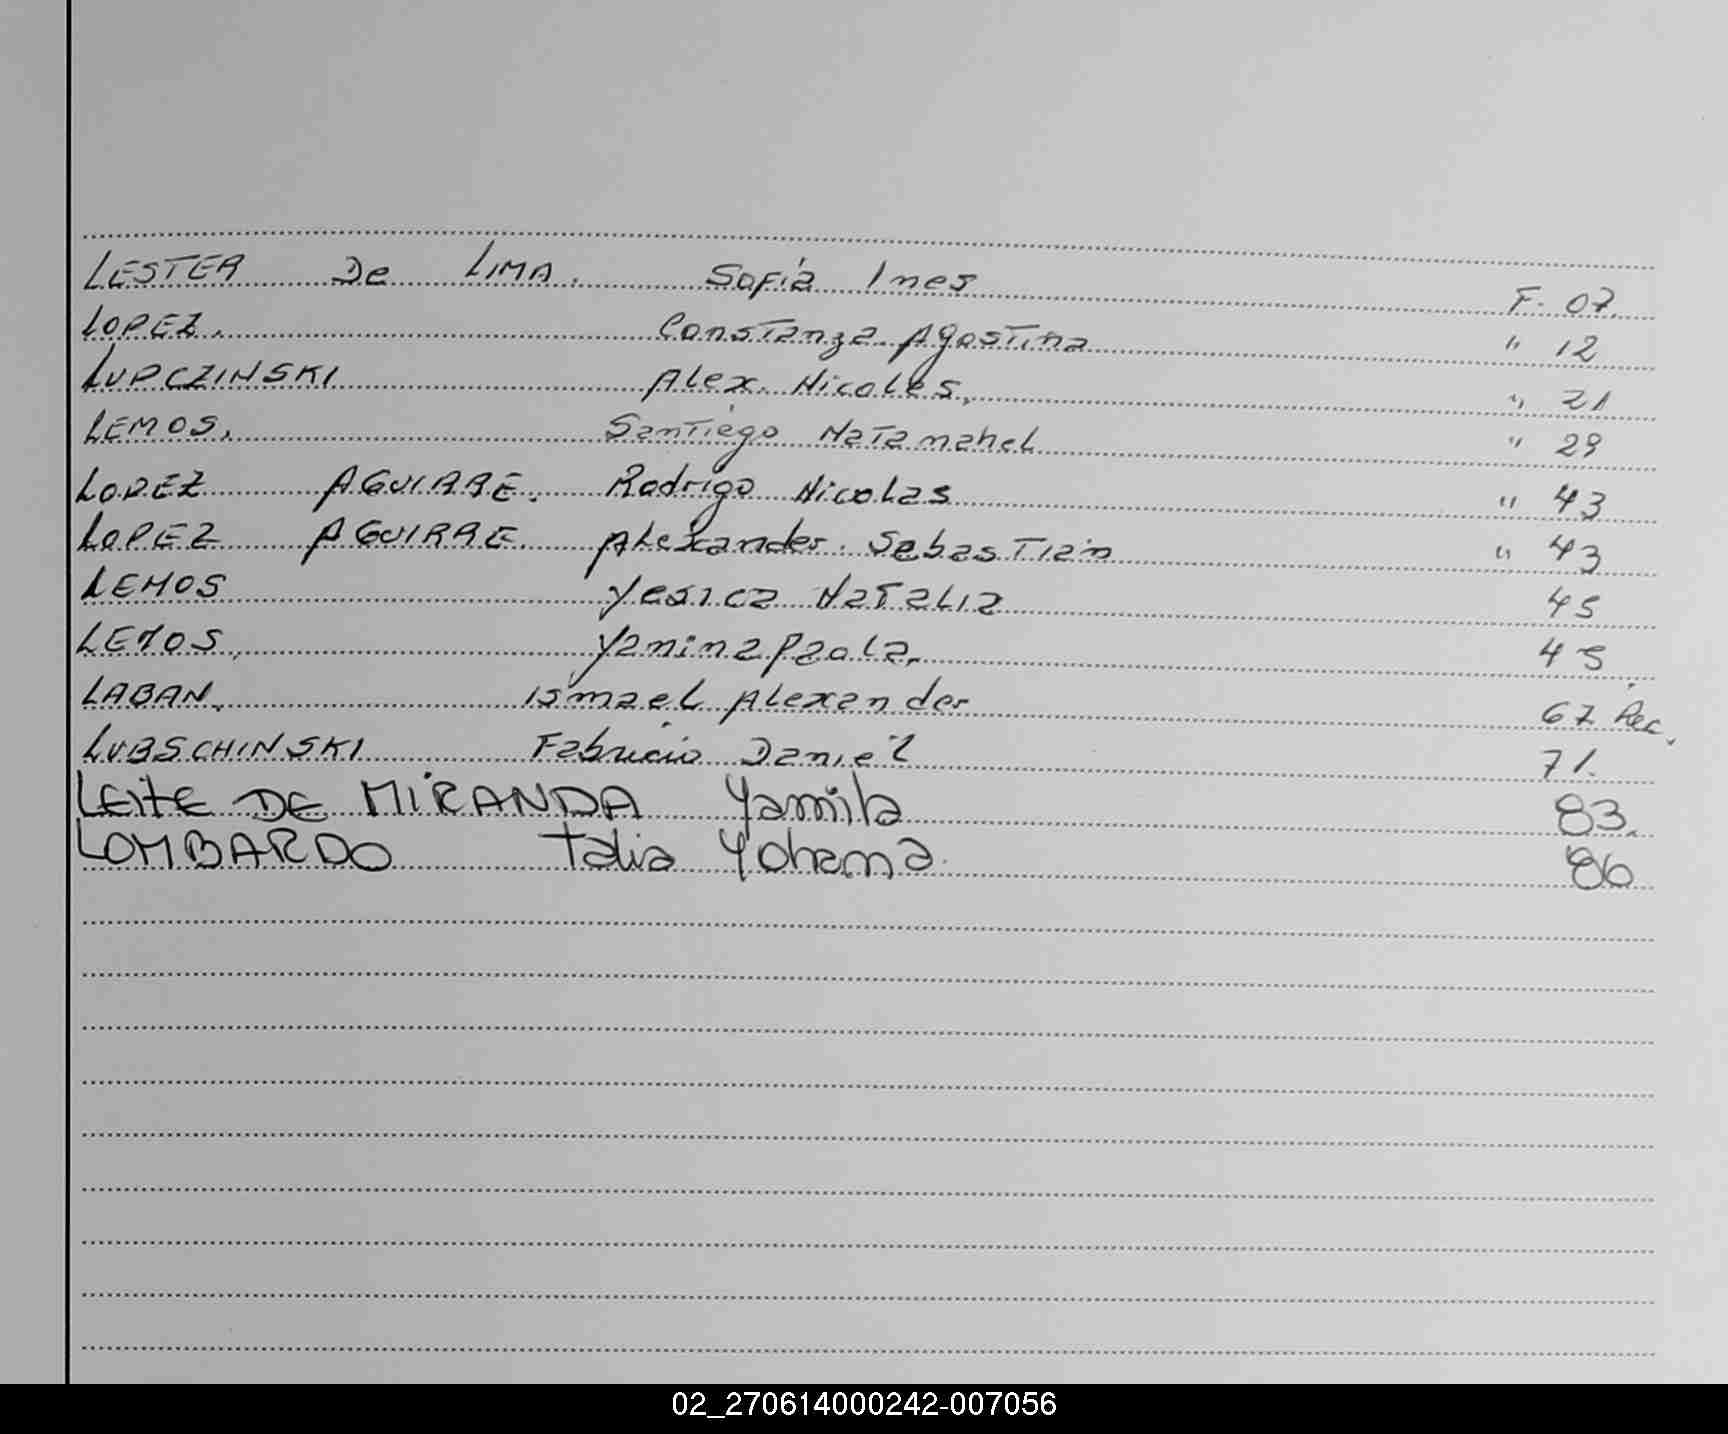 LESTER De LIMA. Sofia Ines F. 07.
LOPEZ. Constanza Agostina " 12
LUPCZINSKI Alex Nicoles. " 21
LEMOS. Santiago Natanahel " 29
LOPEZ AGUIRRE. Rodrigo Nicolas " 43
LOPEZ AGUIRRE. Alexander Sebastian " 43
LEMOS Yesica Natalia 45
LEMOS. Yanina Paola. 45
LABAN. Ismael Alexander 67 Rec.
LUBSCHINSKI Fabricio Daniel 71.
LEITE DE MIRANDA Yamila 83.
LOMBARDO Talia Yohana. 86
02_270614000242-007056